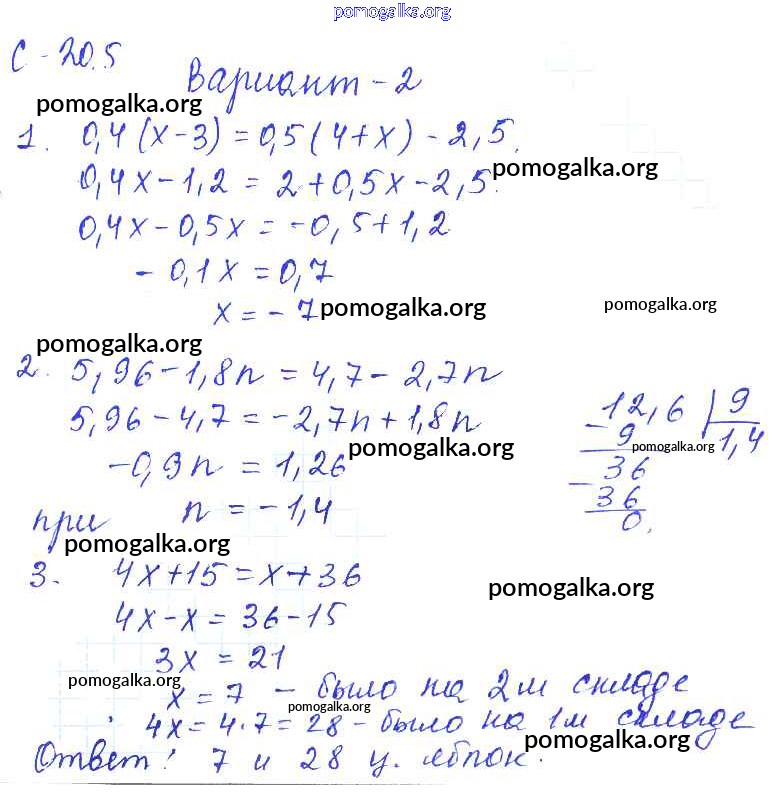 pomogalka.org
С-20.5
Вариант-2
pomogalka.org
1. 0,4(x-3)=0,5(4+x)-2,5.
pomogalka.org
0,4x-1,2=2+0,5x-2,5.
0,4x-0,5x=-0,5+1,2
-0,1x=0,7
x=-7
pomogalka.org
pomogalka.org
pomogalka.org
2. 5,96-1,8n=4,7-2,7n
5,96-4,7=-2,7n+1,8n
pomogalka.org
-0,9n=1,26
при n=-1,4
12,6 | 9
- 9 1,4
pomogalka.org
- 36
36
0.
pomogalka.org
3. 4x+15=x+36
pomogalka.org
4x-x=36-15
3x=21
pomogalka.org
x=7 - было на 2м складе
pomogalka.org
4x=4·7=28-было на 1м складе
pomogalka.org
Ответ: 7 и 28 ц. яблок.